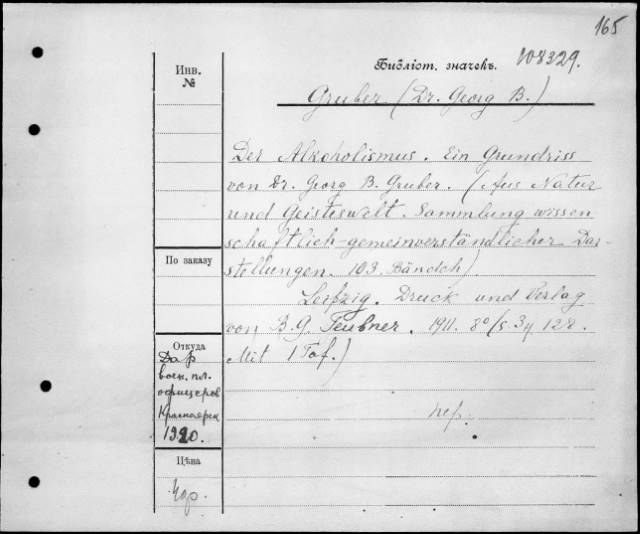 165
Инв.
№
Библіот. значекъ. 108329.
Gruber (Dr. Georg B.)
Der Alkoholismus. Ein Grundriss
von Dr. Georg B. Gruber. (Aus Natur
und Geisteswelt. Sammlung wissen
schaftlich-gemeinverständlicher Dar-
По заказу
stellungen. 103. Bändch)
Leipzig. Druck und Verlag
von B. G. Teubner. 1911. 8°/s. 3 127.
Mit 1 Taf.)
Откуда
Дар
воен. пл.
офицеров
Красноярск
1920.
пер.
Цѣна